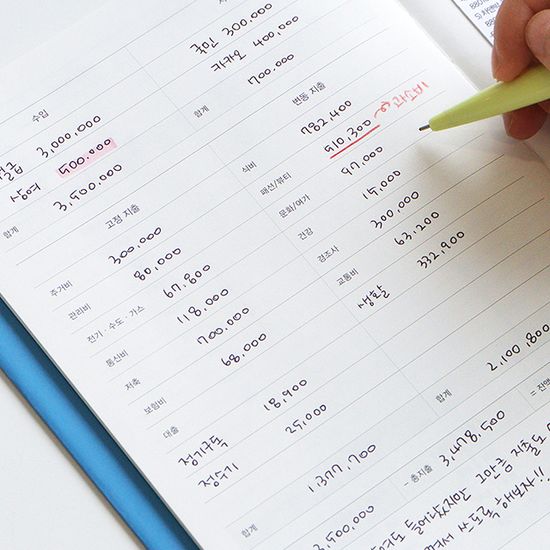 수입
월급 3,000,000
상여 500,000
합계 3,500,000
고정 지출
주거비 300,000
관리비 80,000
전기 . 수도 . 가스 67,800
통신비 118,000
저축 700,000
보험비 68,000
대출
정기구독 18,900
정수기 25,000
합계 1,377,700
국민 300,000
카카오 400,000
합계 700,000
변동 지출
식비
패션/뷰티 910,300 과소비
문화/여가 97,000
건강 15,000
경조사 300,000
교통비 63,200
생활 332,900
합계 2,100,800
3,500,000 - 총지출 3,478,500 = 잔액
그만큼 지출도
쓰도록 해보자!!